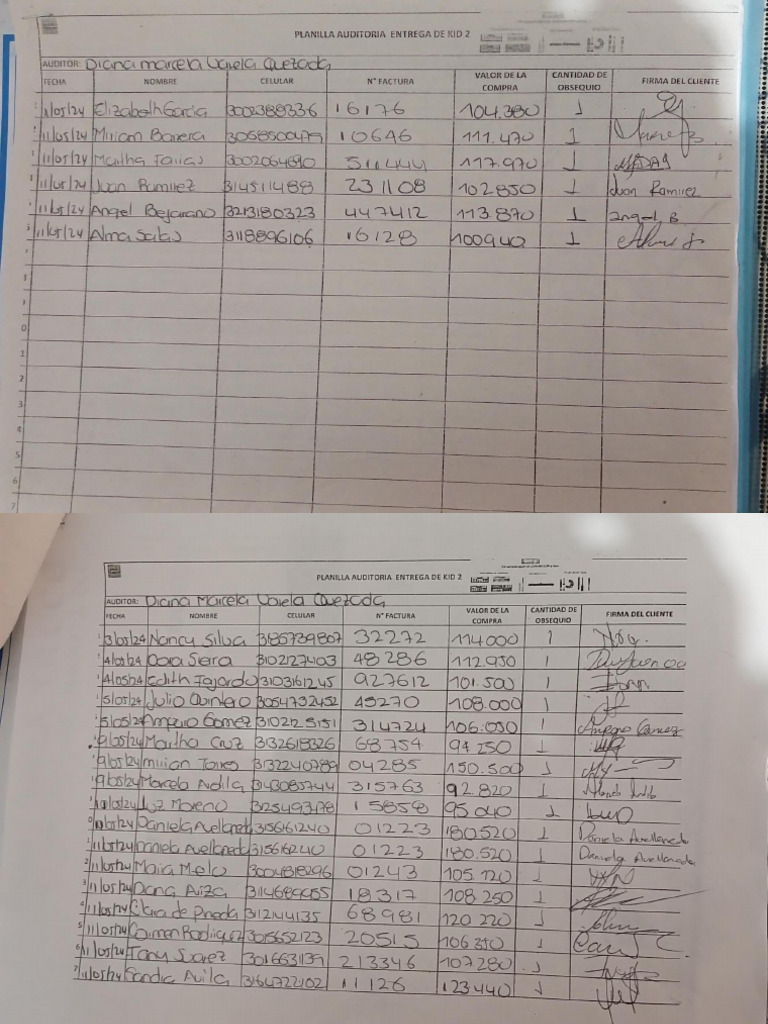 PLANILLA AUDITORIA ENTREGA DE KID 2
AUDITOR: Diana Marcela Varela Quezada
FECHA NOMBRE CELULAR N° FACTURA VALOR DE LA COMPRA CANTIDAD DE OBSEQUIO FIRMA DEL CLIENTE
11/05/24 Elizabeth Garcia 3002388336 16176 104.380 1
11/05/24 Miriam Barrera 3058500479 10646 111.470 1
11/05/24 Martha 3002064690 511444 117.970 1
11/05/24 Juan Ramirez 314511488 231108 102850 1 Juan Ramirez
11/05/24 Angel Bejarano 3213180323 447412 113.870 1 angel B
11/05/24 Alma Salas 3118896106 16128 100940 1
0
1
2
3
4
5
6
7
PLANILLA AUDITORIA ENTREGA DE KID 2
AUDITOR: Diana Marcela Varela Quezada
FECHA NOMBRE CELULAR N° FACTURA VALOR DE LA COMPRA CANTIDAD DE OBSEQUIO FIRMA DEL CLIENTE
3/05/24 Nancy Silva 3185739807 32272 114000 1
4/05/24 Dora 3102127403 48286 112.950 1
4/05/24 Edith Fajardo 3103161245 927612 101.500 1
5/05/24 Julio Quintero 3054732452 45270 108.000 1
5/05/24 Amparo Gomez 3102125151 314724 106.050 1 Amparo Gomez
9/05/24 Martha Cruz 3132618326 68754 94250 1
9/05/24 Torres 3132240789 04285 150.500 1
9/05/24 Marcela 3143085744 315763 92.820 1
10/05/24 Luz Moreno 3125493178 15858 95040 1
11/05/24 Daniela Avellaneda 3156161240 01223 180.520 1 Daniela Avellaneda
11/05/24 Daniela Avellaneda 315616240 01223 180.520 1 Daniela Avellaneda
11/05/24 Maria Melo 3004818296 01243 105.120 1
11/05/24 Diana Ariza 3114689955 18317 108.250 1
11/05/24 Clara de Pineda 312144135 68981 120220 1
11/05/24 Carmen Rodriguez 3015652123 20515 106350 1
11/05/24 Suarez 3016631139 213346 107280 1
11/05/24 Sandra Avila 3164722102 11126 123440 1